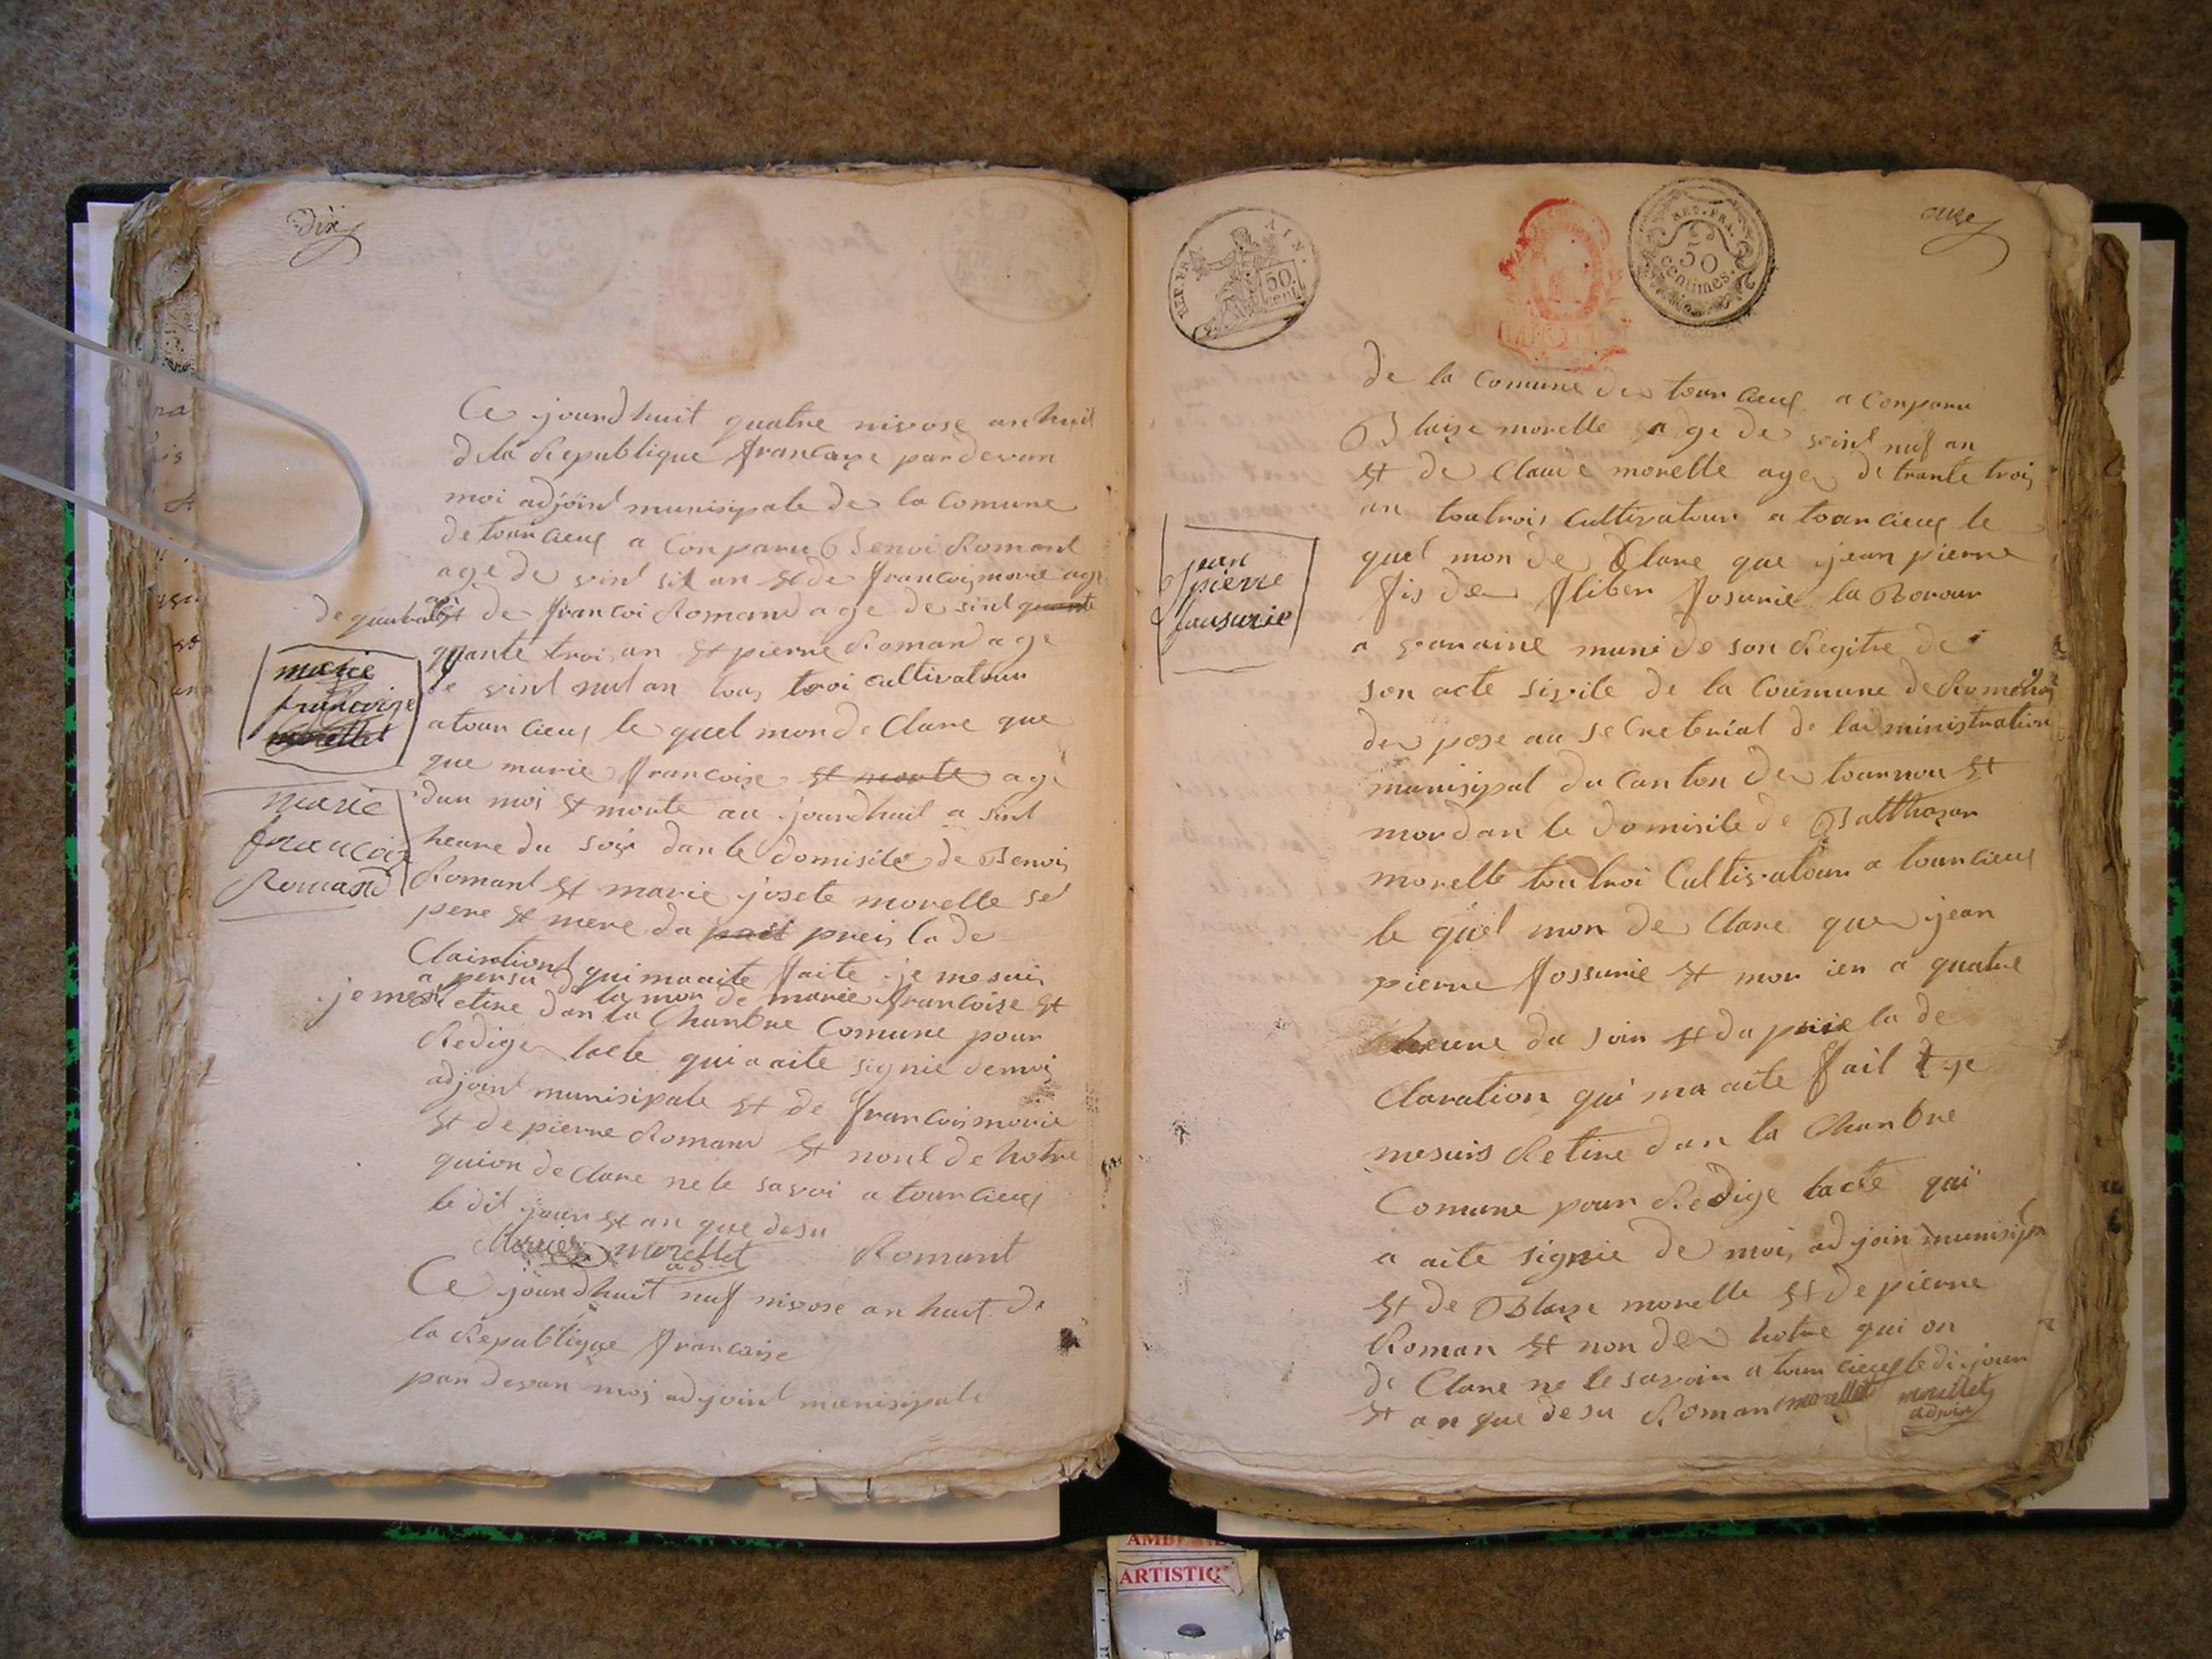 Dix
Ce jourdhuit quatre nivose an huit
dela Republique francaise pardevan
moi adjoint munisipale de la Comune
de tourcieus a Conparu Benoi Romant
age de vint sit an et de francois morié age
et de francoi Romand age de sint quante
quante troi an et pierre Roman age
de vint nut an tous troi cultivatour
a tourcieus le quel mon de Clare que
que marie francoise et morte age
dun mois et morte au jourdhuit a sint
heure du soir dan le domisile de Benois
Romant et marie josete morelle se
pere et mere da pres la de
Clairation qui ma aite faite je me suis
a persu de la mor de marie francoise et
je me Retire dan la Chanbre Comune pour
Redige lacte qui a aite signie de moi
adjoint munisipale et de francois morie
et de pierre Romand et non de hotre
qui on de Clare ne le savoi a tourcieus
le dit jour et an que desu
morellet Romant
ad
Ce jourdhuit nuf nivose an huit de
la Republique francaise
par devan moi adjoint munisipale
marie
francoise
morellet
marie
francoise
Romand
REP. FRA. 50 cent.
REP. FRA.
50
centimes.
onze
de la Comune de tourcieus a Conparu
Blaise morelle age de vint nuf an
et de Claude morelle age de trante trois
an toutrois Cultivatour a tourcieus le
quel mon de Clare que jean pierre
fis de fliber fosurie la Borour
a muni de son Regitre de
son acte sivile de la Coumune de
de pose au seCreteriat de ladministration
munisipal du Canton de tournou et
mor dan le domisile de Balthasar
morelle toutroi Cultivatour a tourcieus
le quel mon de Clare que jean
pierre fossurie et mor ier a quatre
heure du soir et da pris la de
Claration qui ma aite fait je
mesuis Retire dan la Chanbre
Comune pour Redige lacte qui
a aite signie de moi adjoin munisipa
et de Blaise morelle et de pierre
Roman et non de hotre qui on
de Clare ne le savoir a tourcieus le di jour
et an que desu Roman morellet morellet
adjoin
jean
pierre
fausurie
ARTISTIQ